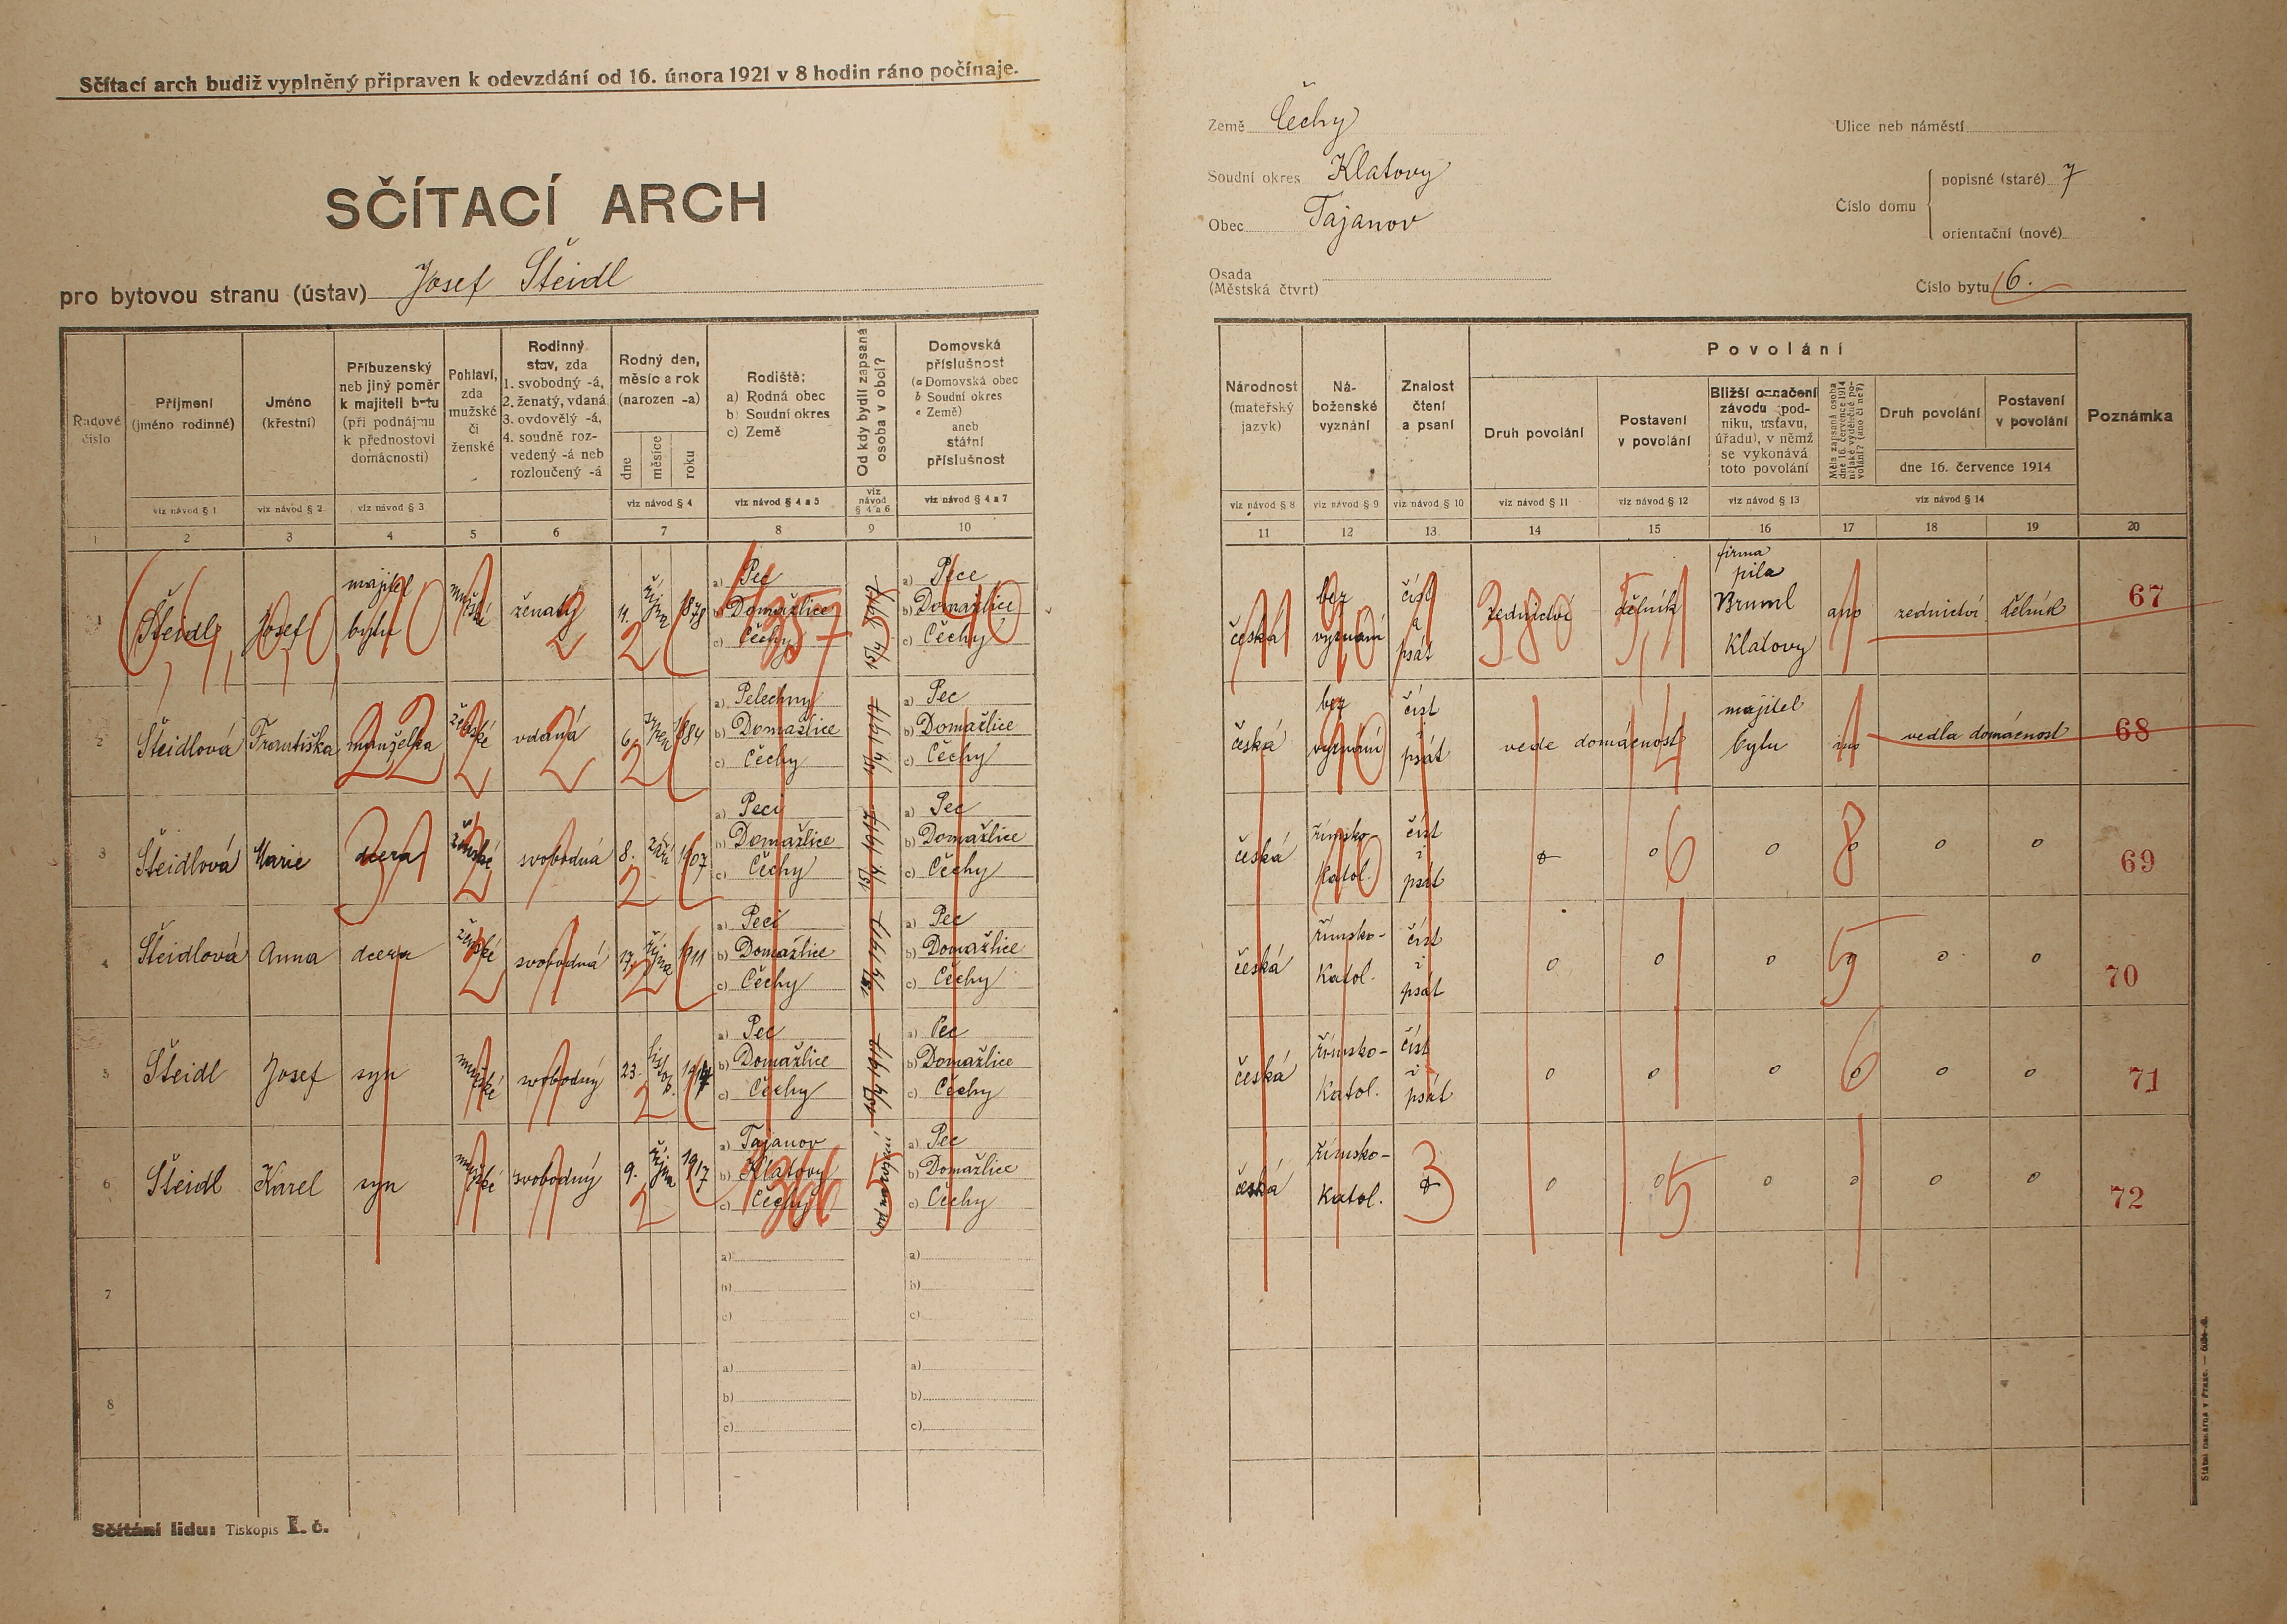 Sčítací arch budiž vyplněný připraven k odevzdání od 16. února 1921 v 8 hodin ráno počínaje.
SČÍTACÍ ARCH
pro bytovou stranu (ústav) Josef Šteidl
Země Čechy
Soudní okres Klatovy
Obec Tajanov
Osada
(Městská čtvrt)
Ulice neb náměstí
Číslo domu
popisné (staré) 7
orientační (nové)
Číslo bytu 6.
Řadové číslo
Příjmení (jméno rodinné)
Jméno (křestní)
Příbuzenský neb jiný poměr k majiteli bytu (při podnájmu k přednostovi domácnosti)
Pohlaví, zda mužské či ženské
Rodinný stav, zda 1. svobodný -á, 2. ženatý, vdaná 3. ovdovělý -á, 4. soudně rozvedený -á neb rozloučený -á
Rodný den, měsíc a rok (narozen -a)
dne měsíce roku
Rodiště: a) Rodná obec b) Soudní okres c) Země
Od kdy bydlí zapsaná osoba v obci?
Domovská příslušnost (a Domovská obec b Soudní okres c Země) aneb státní příslušnost
viz návod § 1 viz návod § 2 viz návod § 3 viz návod § 4 viz návod § 4 a 5 viz návod § 4 a 6 viz návod § 4 a 7
1 2 3 4 5 6 7 8 9 10
Národnost (mateřský jazyk)
Náboženské vyznání
Znalost čtení a psaní
Povolání
Druh povolání
Postavení v povolání
Bližší označení závodu (podniku, ústavu, úřadu), v němž se vykonává toto povolání
Měla zapsaná osoba dne 16. července 1914 nějaké výdělečné povolání? (ano či ne?)
Druh povolání
Postavení v povolání
dne 16. července 1914
Poznámka
viz návod § 8 viz návod § 9 viz návod § 10 viz návod § 11 viz návod § 12 viz návod § 13 viz návod § 14
11 12 13 14 15 16 17 18 19 20
1 Šteidl Josef majitel bytu mužské ženatý říjn 1878 a) Pec b) Domažlice c) Čechy a) Pece b) Domažlice c) Čechy
česká bez vyznání číst a psát zednictví dělník firma pila Bruml Klatovy ano zednictví dělník 67
2 Šteidlová Františka manželka ženské vdaná 6. srpen 1884 a) Pelechy b) Domažlice c) Čechy a) Pec b) Domažlice c) Čechy
česká bez vyznání číst i psát vede domácnost majitel bytu ano vedla domácnost 68
3 Šteidlová Marie dcera ženské svobodná 8. září 1907 a) Peci b) Domažlice c) Čechy 15/4 1917 a) Pec b) Domažlice c) Čechy
česká římsko-katol. číst i psát 0 0 0 0 0 0 69
4 Šteidlová Anna dcera ženské svobodná 17. října 1911 a) Peci b) Domažlice c) Čechy 15/4 1917 a) Pec b) Domažlice c) Čechy
česká římsko-katol. číst i psát 0 0 0 0 0 0 70
5 Šteidl Josef syn mužské svobodný 23. listop. a) Pec b) Domažlice c) Čechy 15/4 1917 a) Pec b) Domažlice c) Čechy
česká římsko-katol. číst i psát 0 0 0 0 0 0 71
6 Šteidl Karel syn mužské svobodný 9. října 1917 a) Tajanov b) Klatovy c) Čechy od narození a) Pec b) Domažlice c) Čechy
česká římsko-katol. 0 0 0 0 0 0 0 72
7 a) b) c) a) b) c)
8 a) b) c) a) b) c)
Sčítání lidu: Tiskopis I. č.
Státní tiskárna v Praze.